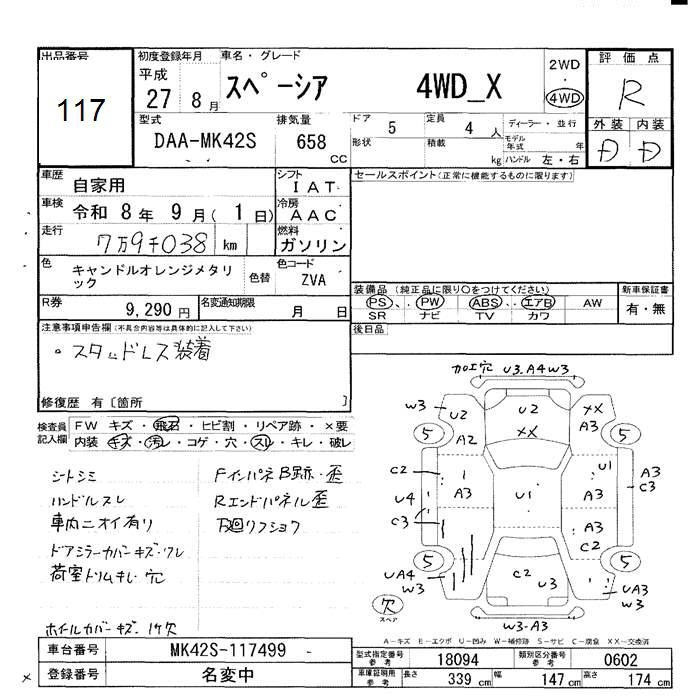 出品番号 初度登録年月 車名・グレード 評価点
117
平成 27 8月 スペーシア 4WD_X 2WD・4WD R
型式 排気量 ドア 5 定員 4人 ディーラー・並行 外装 内装
DAA-MK42S 658 CC 形状 積載 kg モデル年式 年 ハンドル 左・右 D D
車歴 自家用 シフト IAT セールスポイント(正常に機能するものに限ります)
車検 令和 8年 9月(1日) 冷房 AAC
走行 7万9千038 km 燃料 ガソリン
色 キャンドルオレンジメタリック 色替 色コード ZVA
装備品 (純正品に限り○をつけてください) 新車保証書
PS PW ABS エアB AW 有・無
SR ナビ TV カワ
R券 9,290円 名変通知期限 月 日
後日品
注意事項申告欄(不具合内容等は具体的に記入して下さい)
・スタッドレス装着
修復歴 有〔箇所 〕
検査員記入欄 FW キズ・飛石・ヒビ割・リペア跡・×要
内装 キズ・汚レ・コゲ・穴・スレ・キレ・破レ
シートシミ
ハンドルスレ
車内ニオイ有り
ドアミラーカバーキズ・ワレ
荷室トリムキレ・穴
ホイルカバーキズ・1ケ欠
FインパネB跡・歪
Rエンドパネル歪
下廻リフショク
加工穴 U3.A4W3
W3 U2 U2 XX
5 A2 XX A3 5
C2 U1 A3
U4 A3 U1 A3 C3
C3 A3
C2
5 5
UA4 C2 U3 UA3
W3 W3
欠 スペア W3-A3
A-キズ E-エクボ U-凹み W-補修跡 S-サビ C-腐食 XX-交換済
車台番号 MK42S-117499
型式指定番号 参考 18094 類別区分番号 参考 0602
登録番号 名変中
車庫証明用 参考 長さ 339 cm 幅 147 cm 高さ 174 cm